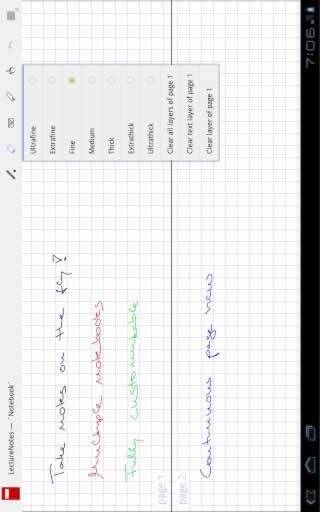 LectureNotes — 'Notebook'
7:06
Ultrafine
Extrafine
Fine
Medium
Thick
Extrathick
Ultrathick
Clear all layers of page 1
Clear text layer of page 1
Clear layer of page 1
Take notes on the fly!
Multiple notebooks
Fully customizable
page 1
page 2
Continuous page view